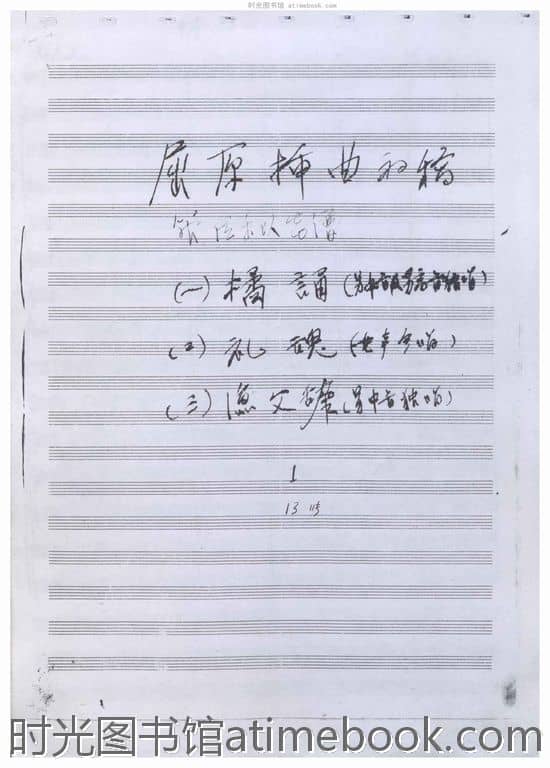 时光图书馆 · atimebook.com
屈原插曲初稿
(一) 橘誦 (男中音及男高音独唱)
(二) 礼魂 (女声合唱)
(三) 漁父辞 (男中音独唱)
1
时光图书馆atimebook.com